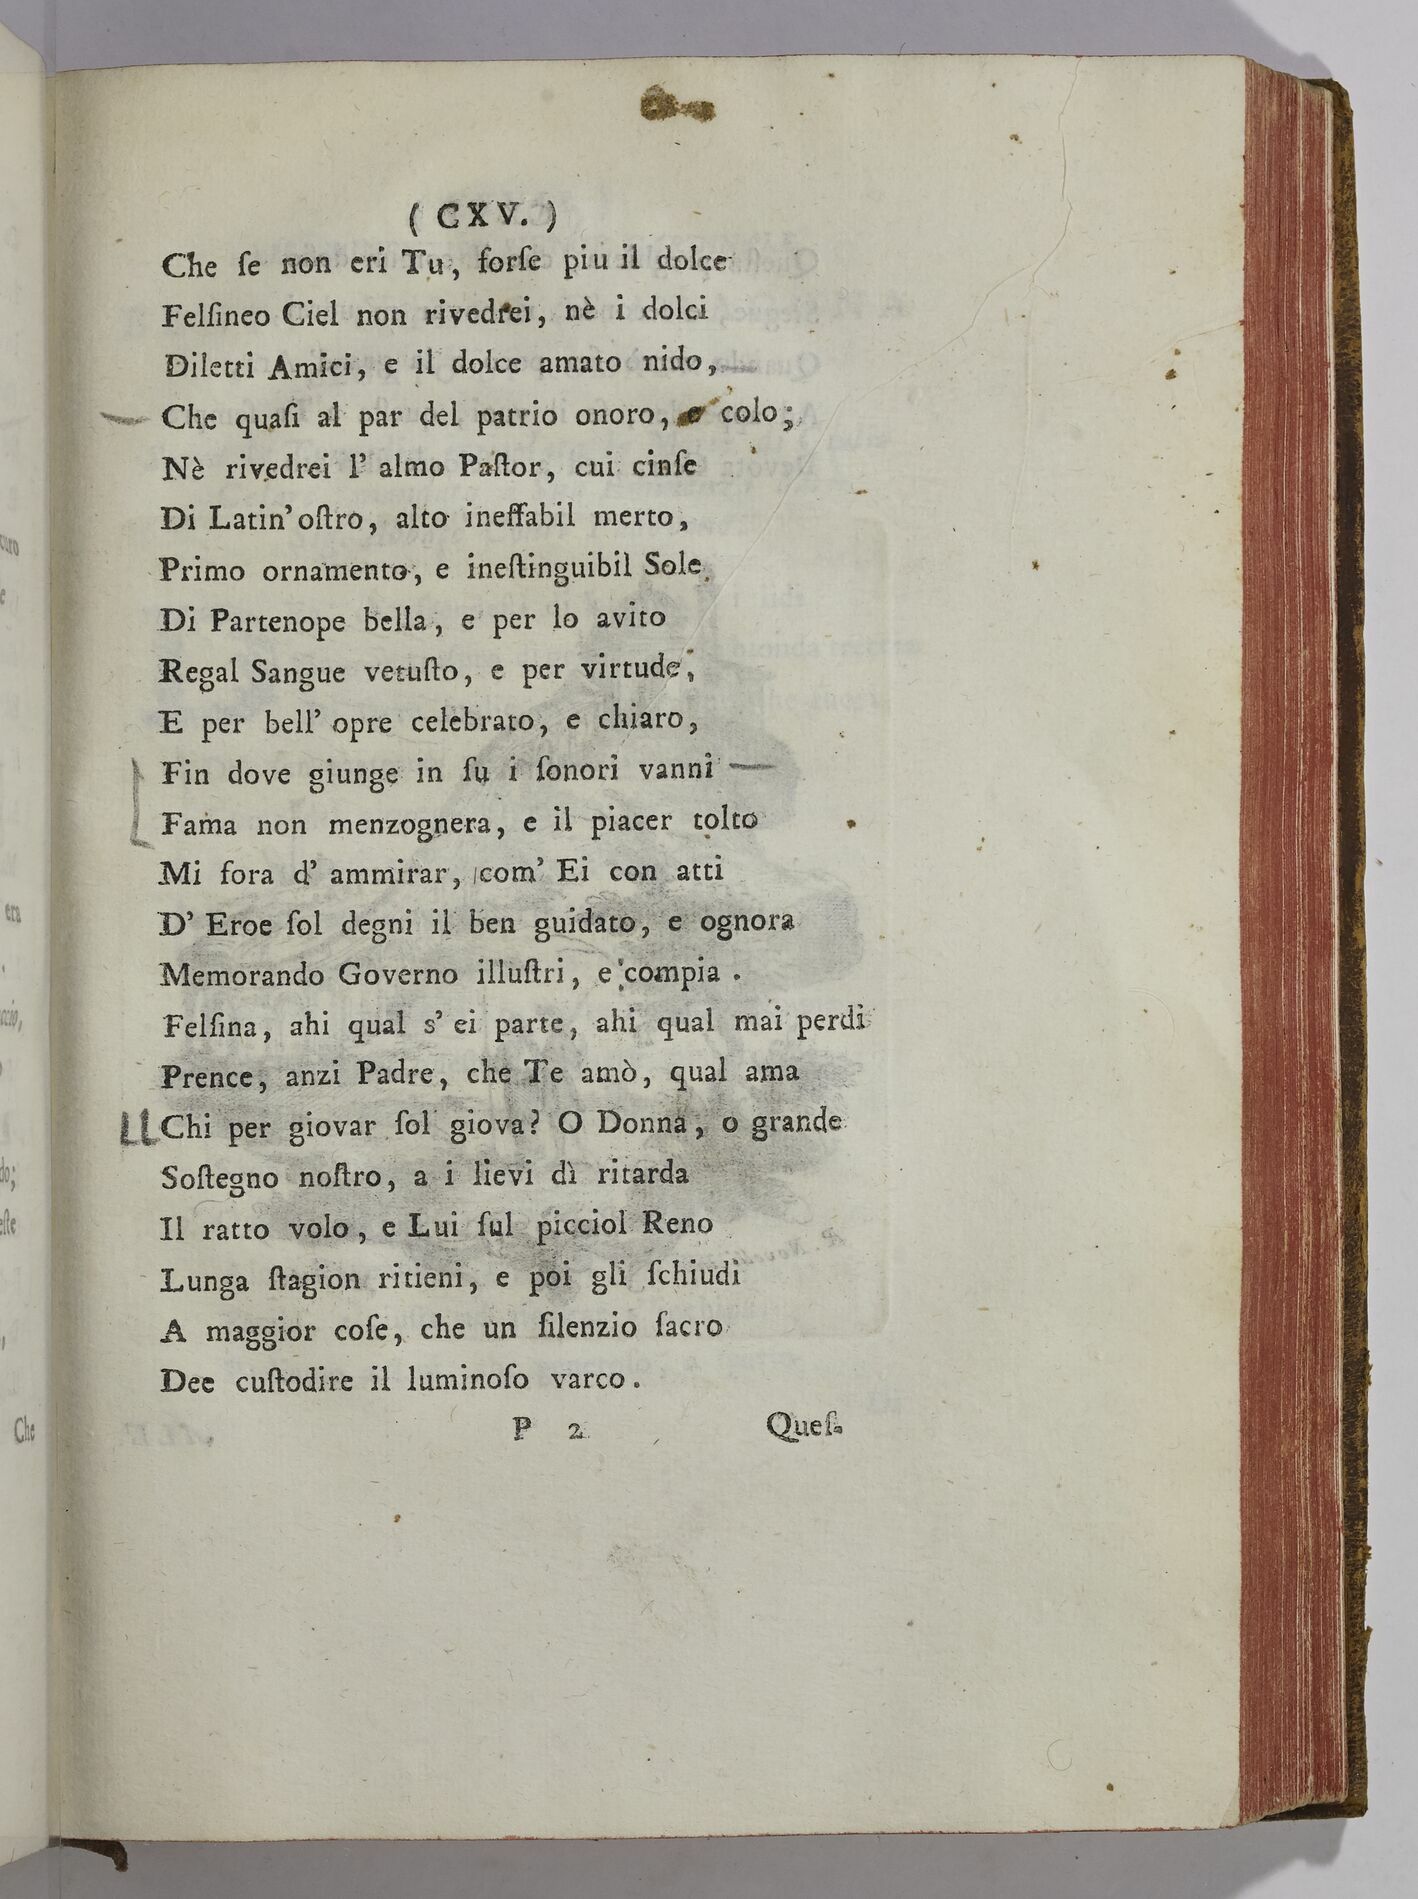 ( CXV. )
Che ſe non eri Tu, forſe piu il dolce
Felſineo Ciel non rivedrei, nè i dolci
Diletti Amici, e il dolce amato nido,
Che quaſi al par del patrio onoro, e colo;
Nè rivedrei l' almo Paſtor, cui cinſe
Di Latin' oſtro, alto ineffabil merto,
Primo ornamento, e ineſtinguibil Sole
Di Partenope bella, e per lo avito
Regal Sangue vetuſto, e per virtude,
E per bell' opre celebrato, e chiaro,
Fin dove giunge in ſu i ſonori vanni
Fama non menzognera, e il piacer tolto
Mi fora d' ammirar, com' Ei con atti
D' Eroe ſol degni il ben guidato, e ognora
Memorando Governo illuſtri, e compia .
Felſina, ahi qual s' ei parte, ahi qual mai perdi
Prence, anzi Padre, che Te amò, qual ama
Chi per giovar ſol giova? O Donna, o grande
Soſtegno noſtro, a i lievi dì ritarda
Il ratto volo, e Lui ſul picciol Reno
Lunga ſtagion ritieni, e poi gli ſchiudi
A maggior coſe, che un ſilenzio ſacro
Dee cuſtodire il luminoſo varco.
P 2
Queſ-
curo
era
do;
eſte
Che